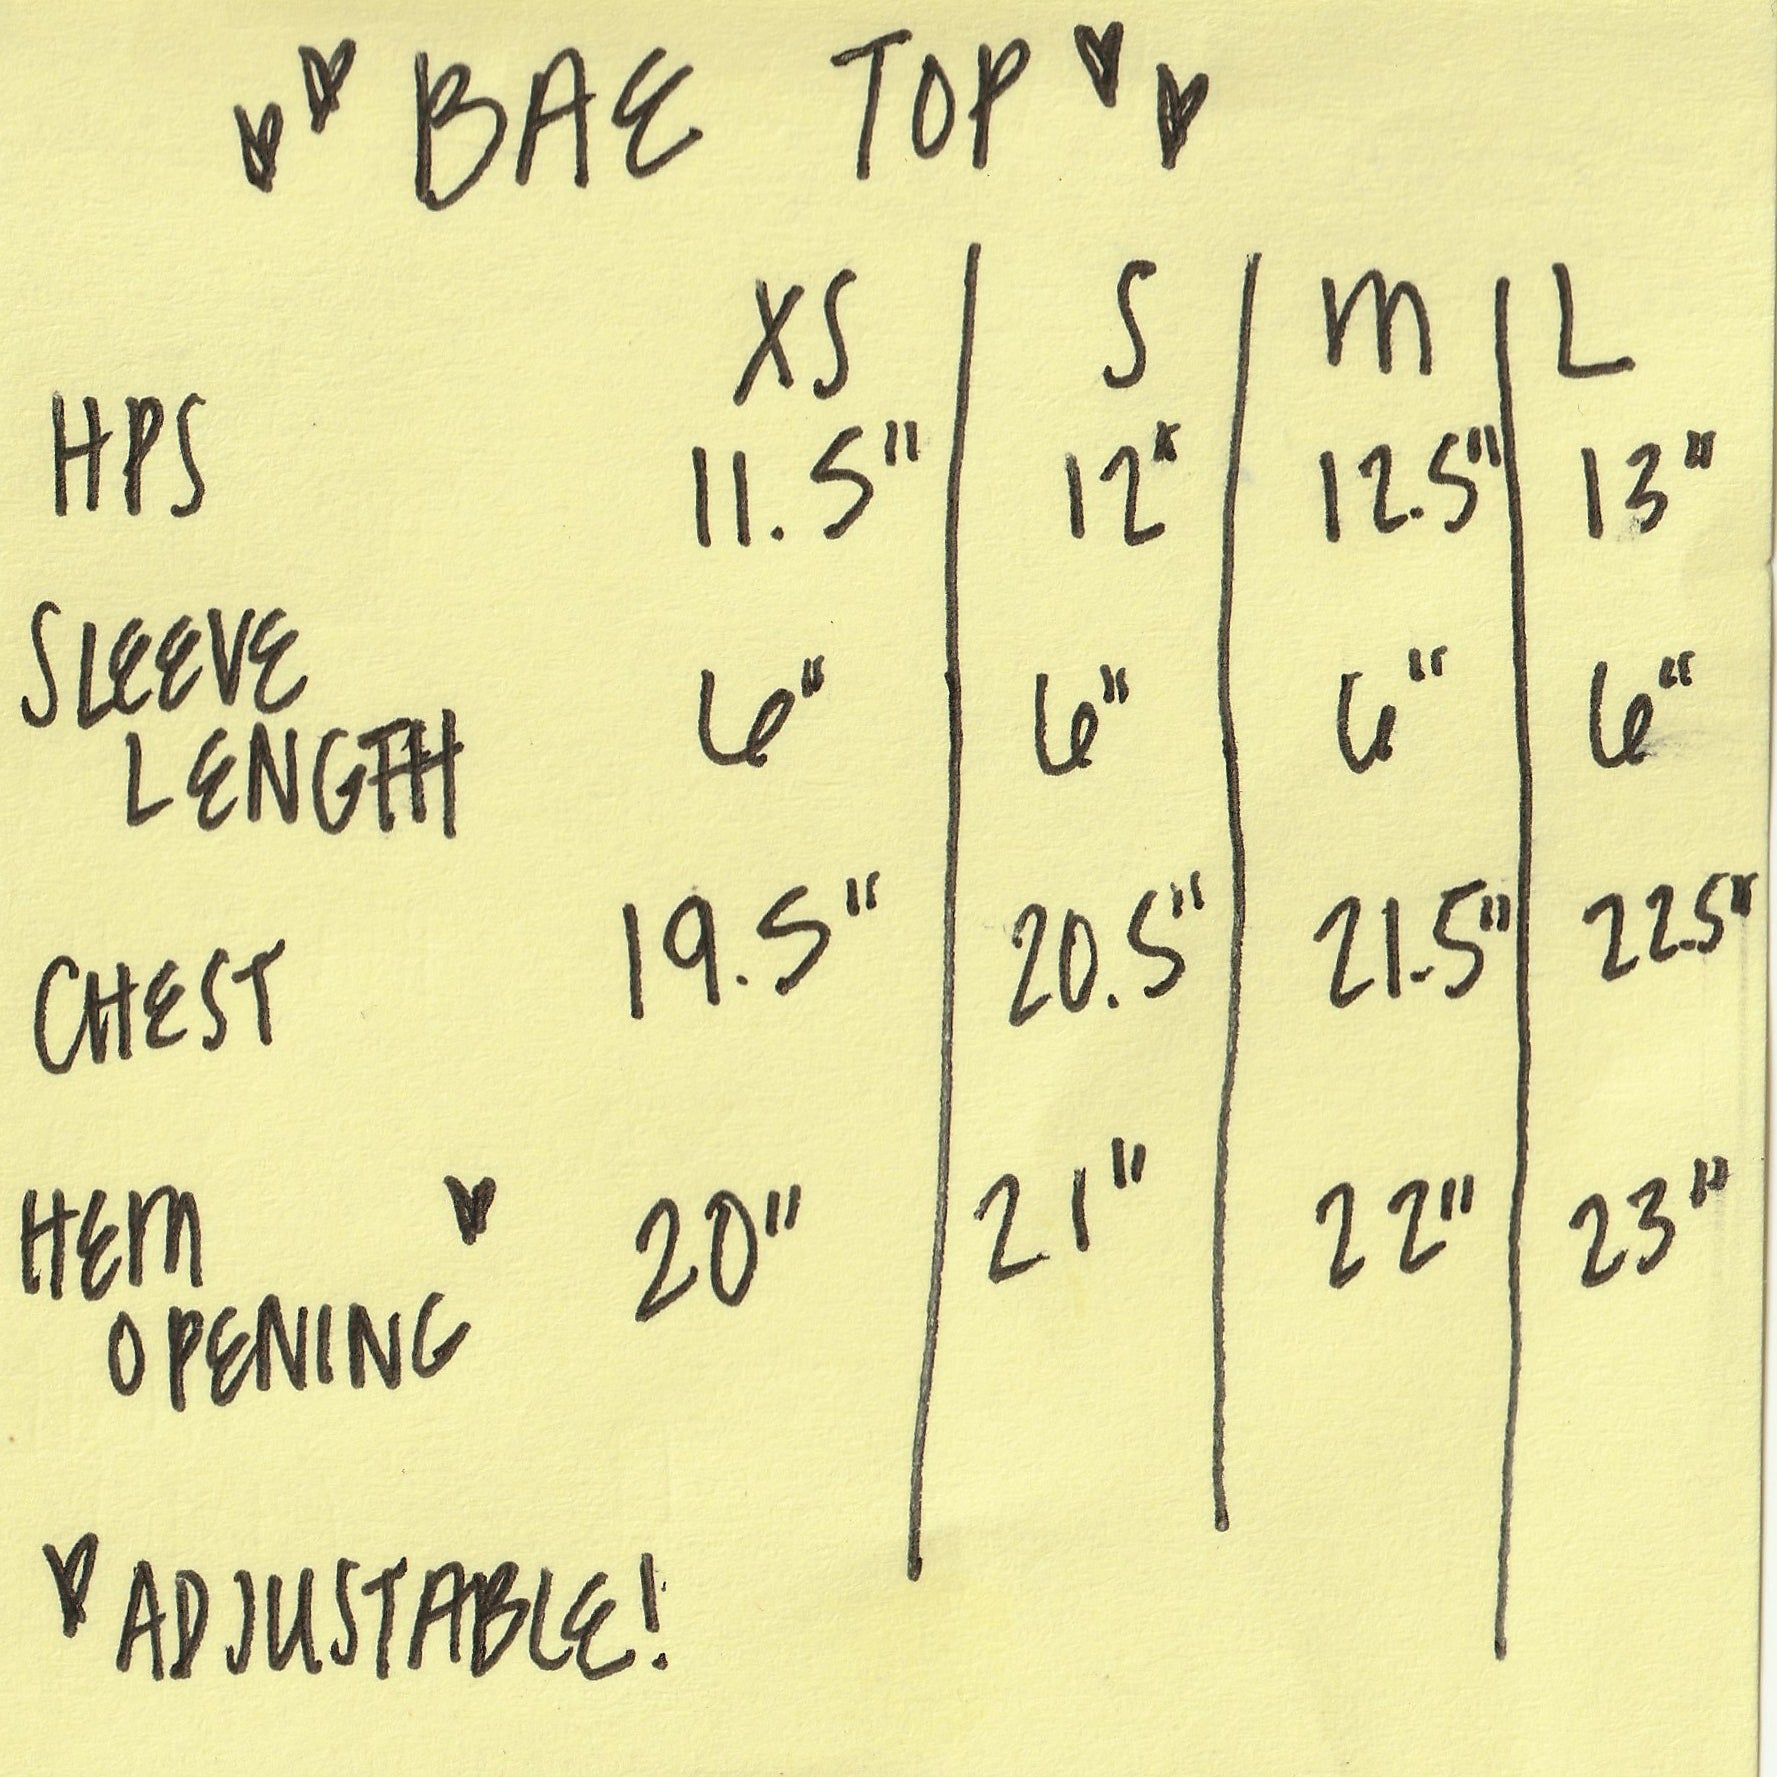 BAE TOP
XS S M L
HPS 11.5" 12" 12.5" 13"
SLEEVE
LENGTH 6" 6" 6" 6"
CHEST 19.5" 20.5" 21.5" 22.5"
HEM ♥ 20" 21" 22" 23"
OPENING
♥ ADJUSTABLE!